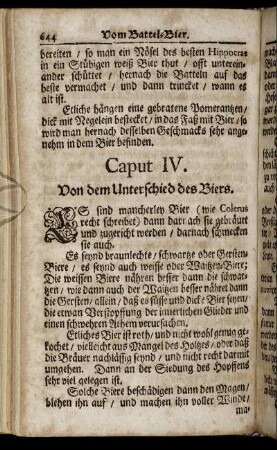 644 Vom Battel-Bier.
bereiten / so man ein Nösel des besten Hippocras
in ein Stübigen weiß Bier thut / offt unterein-
ander schüttet / hernach die Batteln auf das
beste vermachet / und dann trincket / wann es
alt ist.
Etliche hängen eine gebratene Pomerantzen /
dick mit Negelein bestecket / in das Faß mit Bier / so
wird man hernach desselben Geschmacks sehr ange-
nehm in dem Bier befinden.
Caput IV.
Von dem Unterschied des Biers.
ES sind mancherley Bier (wie Colerus
recht schreibet) dann darnach sie gebräut
und zugericht werden / darnach schmecken
sie auch.
Es seynd braunlechte / schwartze oder Gersten-
Biere / es seynd auch weisse oder Waitzen-Biere;
Die weissen Biere nähren besser dann die schwar-
tzen / wie dann auch der Waitzen besser nähret dann
die Gersten / allein / daß es süsse und dicke Bier seyen /
die etwan Verstopffung der innerlichen Glieder und
einen schwehren Athem verursachen.
Etliches Bier ist roth / und nicht wohl genug ge-
kochet / vielleicht aus Mangel des Holtzes / oder daß
die Bräuer nachlässig seynd / und nicht recht darmit
umgehen. Dann an der Siedung des Hopffens
sehr viel gelegen ist.
Solche Biere beschädigen dann den Magen /
blehen ihn auf / und machen ihn voller Winde /
ma-